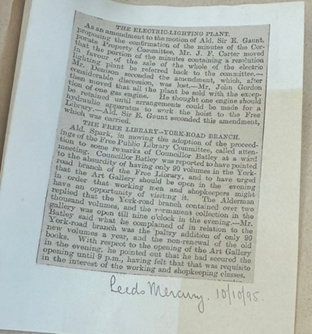 THE ELECTRIC-LIGHTING PLANT.
As an amendment to the motion of Ald. Sir E. Gaunt,
proposing the confirmation of the minutes of the Cor-
porate Property Committee, Mr. J. F. Carter moved
that the portion of the minutes containing a resolution
in favour of the sale of the whole of the electric
lighting plant be referred back to the committee.—
Mr. Denison seconded the amendment, which, after
considerable discussion, was lost.—Mr. John Gordon
then moved that all the plant be sold with the excep-
tion of one gas engine. He thought one engine should
be retained until arrangements could be made for a
hydraulic apparatus to work the hoist to the Free
Library.—Ald. Sir E. Gaunt seconded this amendment,
which was carried.
THE FREE LIBRARY—YORK-ROAD BRANCH.
Ald. Spark, in moving the adoption of the proceed-
ings of the Free Public Library Committee, called atten-
tion to some remarks of Councillor Batley at a ward
meeting. Councillor Batley was reported to have pointed
to the absurdity of having only 90 volumes in the York-
road branch of the Free Library, and to have urged
that the Art Gallery should be open in the evening
in order that working men and shopkeepers might
have an opportunity of visiting it. The Alderman
replied that the York-road branch contained over two
thousand volumes, and the permanent collection in the
gallery was open till nine o'clock in the evening.—Mr.
Batley said what he complained of in relation to the
York-road branch was the paltry addition of only 90
new volumes a year, and the non-renewal of the old
books. With respect to the opening of the Art Gallery
in the evening, he pointed out that he had secured the
opening until 9 p.m., having felt that that was requisite
in the interest of the working and shopkeeping classes.
Leeds Mercury. 10/10/95.